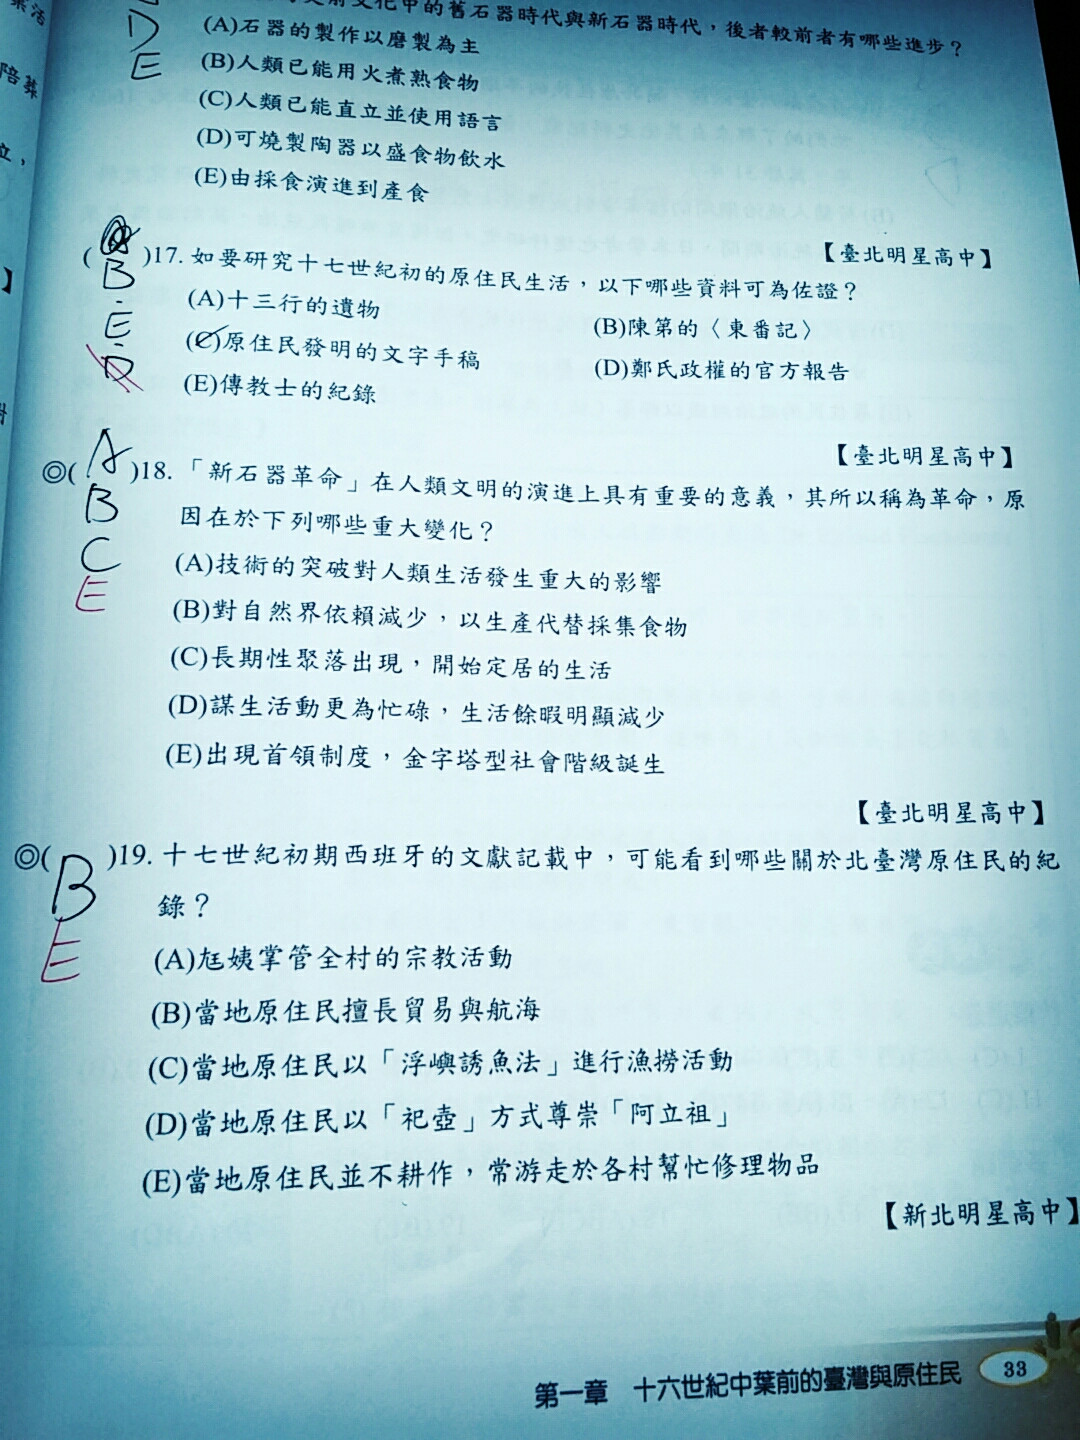 前文化中的舊石器時代與新石器時代，後者較前者有哪些進步？
(A)石器的製作以磨製為主
(B)人類已能用火煮熟食物
(C)人類已能直立並使用語言
(D)可燒製陶器以盛食物飲水
(E)由採食演進到產食
D
E
陪葬
【臺北明星高中】
( )17. 如要研究十七世紀初的原住民生活，以下哪些資料可為佐證？
(A)十三行的遺物
(B)陳第的〈東番記〉
(C)原住民發明的文字手稿
(D)鄭氏政權的官方報告
(E)傳教士的紀錄
B
E
D
【臺北明星高中】
◎( A )18. 「新石器革命」在人類文明的演進上具有重要的意義，其所以稱為革命，原
因在於下列哪些重大變化？
(A)技術的突破對人類生活發生重大的影響
(B)對自然界依賴減少，以生產代替採集食物
(C)長期性聚落出現，開始定居的生活
(D)謀生活動更為忙碌，生活餘暇明顯減少
(E)出現首領制度，金字塔型社會階級誕生
B
C
E
【臺北明星高中】
◎( B )19. 十七世紀初期西班牙的文獻記載中，可能看到哪些關於北臺灣原住民的紀
錄？
(A)尪姨掌管全村的宗教活動
(B)當地原住民擅長貿易與航海
(C)當地原住民以「浮嶼誘魚法」進行漁撈活動
(D)當地原住民以「祀壺」方式尊崇「阿立祖」
(E)當地原住民並不耕作，常游走於各村幫忙修理物品
E
【新北明星高中】
第一章 十六世紀中葉前的臺灣與原住民 33